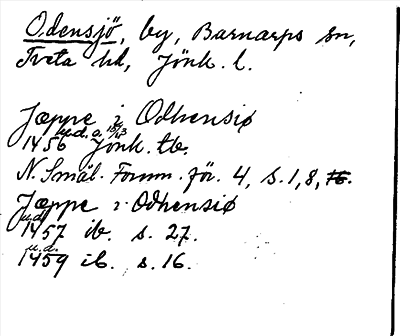 Odensjö, by, Barnarps sn,
Tveta hd, Jönk. l.
Jæppe i Odhensiø
u.d. o. 15/3
1456 Jönk. tb.
N. Smål. Fornm. för. 4, s. 1, 8, 16.
Jæppe i Odhensiø
u.d.
1457 ib. s. 27.
u.d.
1459 ib. s. 16.